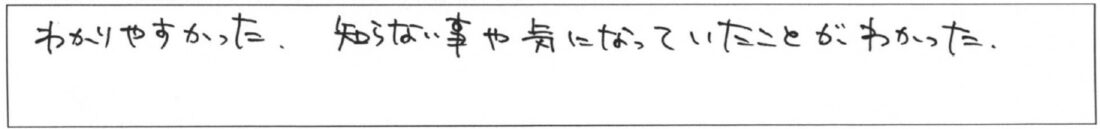 わかりやすかった. 知らない事や気になっていたことがわかった.